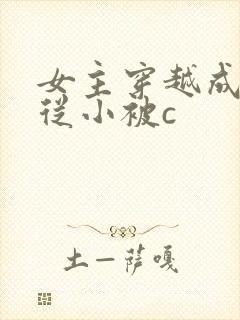 女主穿越成
从小被c
土一萨嘎